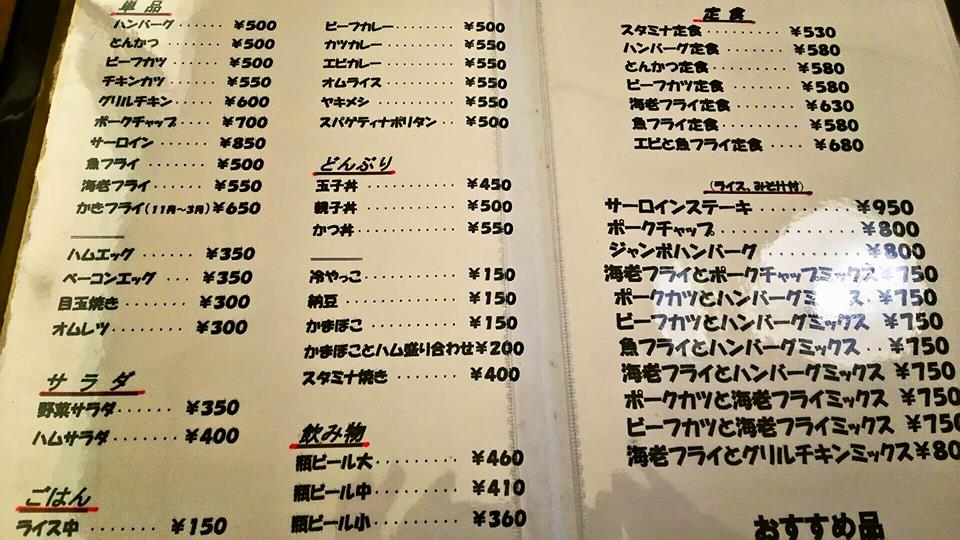 単品
ハンバーグ ‥‥‥ ¥500
とんかつ ‥‥‥ ¥500
ビーフカツ ‥‥‥ ¥500
チキンカツ ‥‥‥ ¥550
グリルチキン ‥‥‥ ¥600
ポークチャップ ‥‥‥ ¥700
サーロイン ‥‥‥ ¥850
魚フライ ‥‥‥ ¥500
海老フライ ‥‥‥ ¥550
かきフライ(11月~3月)¥650
ハムエッグ ‥‥‥ ¥350
ベーコンエッグ ‥‥‥ ¥350
目玉焼き ‥‥‥ ¥300
オムレツ ‥‥‥ ¥300
サラダ
野菜サラダ ‥‥‥ ¥350
ハムサラダ ‥‥‥ ¥400
ごはん
ライス中 ‥‥‥ ¥150
ビーフカレー ‥‥‥ ¥500
カツカレー ‥‥‥ ¥550
エビカレー ‥‥‥ ¥550
オムライス ‥‥‥ ¥550
ヤキメシ ‥‥‥ ¥550
スパゲティナポリタン ‥‥ ¥500
どんぶり
玉子丼 ‥‥‥ ¥450
親子丼 ‥‥‥ ¥500
かつ丼 ‥‥‥ ¥550
冷やっこ ‥‥‥ ¥150
納豆 ‥‥‥ ¥150
かまぼこ ‥‥‥ ¥150
かまぼことハム盛り合わせ¥200
スタミナ焼き ‥‥‥ ¥400
飲み物
瓶ビール大 ‥‥‥ ¥460
瓶ビール中 ‥‥‥ ¥410
瓶ビール小 ‥‥‥ ¥360
定食
スタミナ定食 ‥‥‥ ¥530
ハンバーグ定食 ‥‥‥ ¥580
とんかつ定食 ‥‥‥ ¥580
ビーフカツ定食 ‥‥‥ ¥580
海老フライ定食 ‥‥‥ ¥630
魚フライ定食 ‥‥‥ ¥580
エビと魚フライ定食 ‥‥ ¥680
(ライス、みそ汁付)
サーロインステーキ ‥‥‥ ¥950
ポークチャップ ‥‥‥ ¥800
ジャンボハンバーグ ‥‥‥ ¥800
海老フライとポークチャップミックス ¥750
ポークカツとハンバーグミックス ‥ ¥750
ビーフカツとハンバーグミックス ¥750
魚フライとハンバーグミックス ‥ ¥750
海老フライとハンバーグミックス ¥750
ポークカツと海老フライミックス ¥750
ビーフカツと海老フライミックス ¥750
海老フライとグリルチキンミックス¥80
おすすめ品